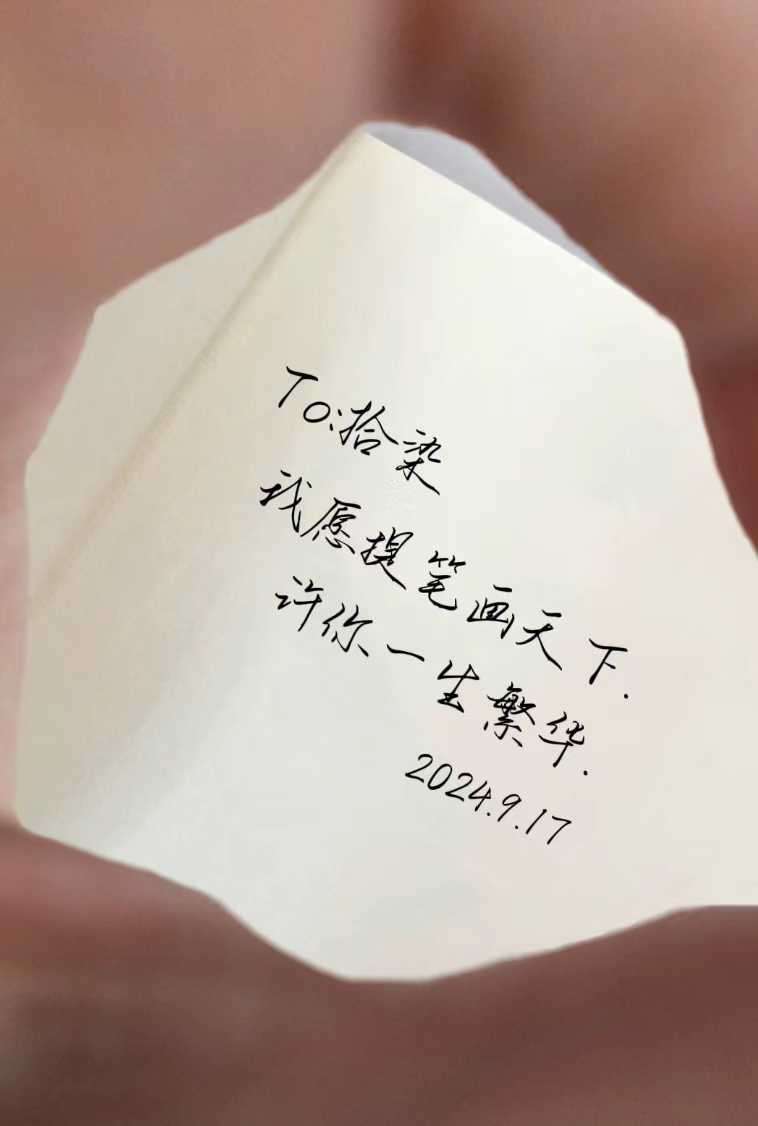 To:拾染
我愿提笔画天下.
许你一生繁华.
2024.9.17